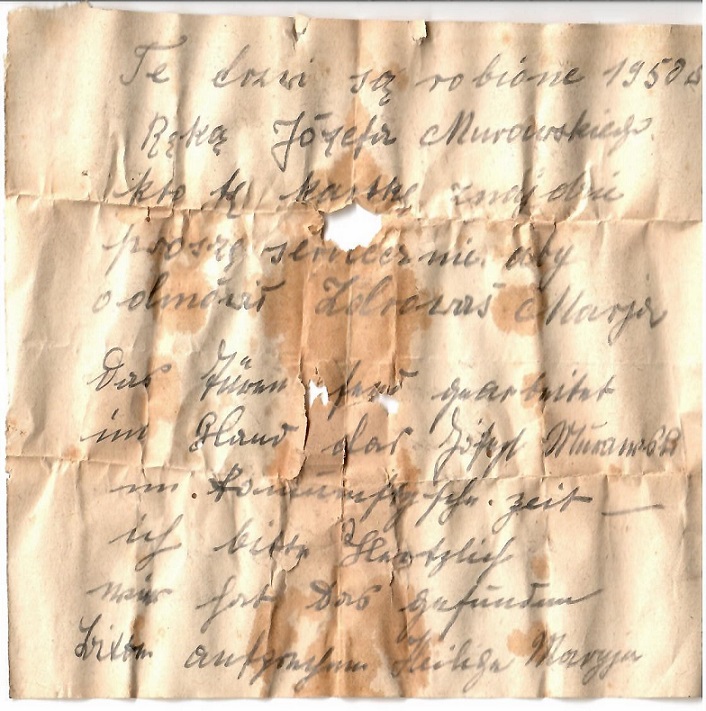 Te drzwi są robione 1950 r
Ręką Józefa Murawskiego
kto tę kartkę znajdzie
proszę serdecznie aby
odmówić Zdrowaś Marja
Das Türen send gearbeitet
im Hand das Josef Murawski
im zeit
ich bitte Hertzlich
wer hat das gefunden
Bitten aufsprechen Heilige Maryja